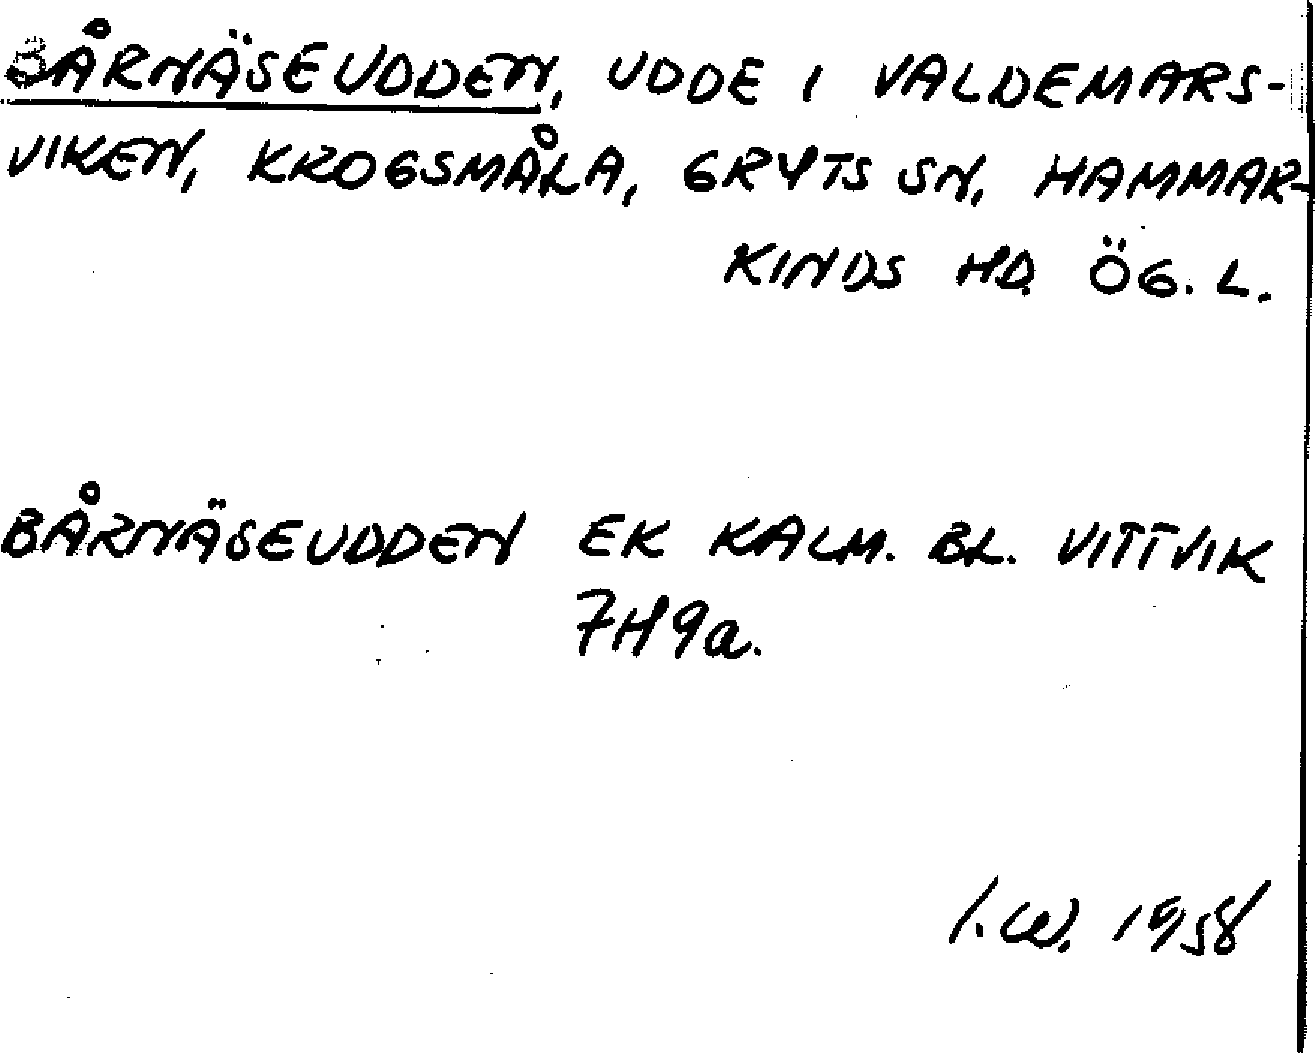 BÅRNÄSEUDDEN, UDDE I VALDEMARS-
VIKEN, KROGSMÅLA, GRYTS SN, HAMMAR-
KINDS HD. ÖG. L.
BÅRNÄSEUDDEN EK KALM. BL. VITTVIK
7H9a.
I.W. 1958